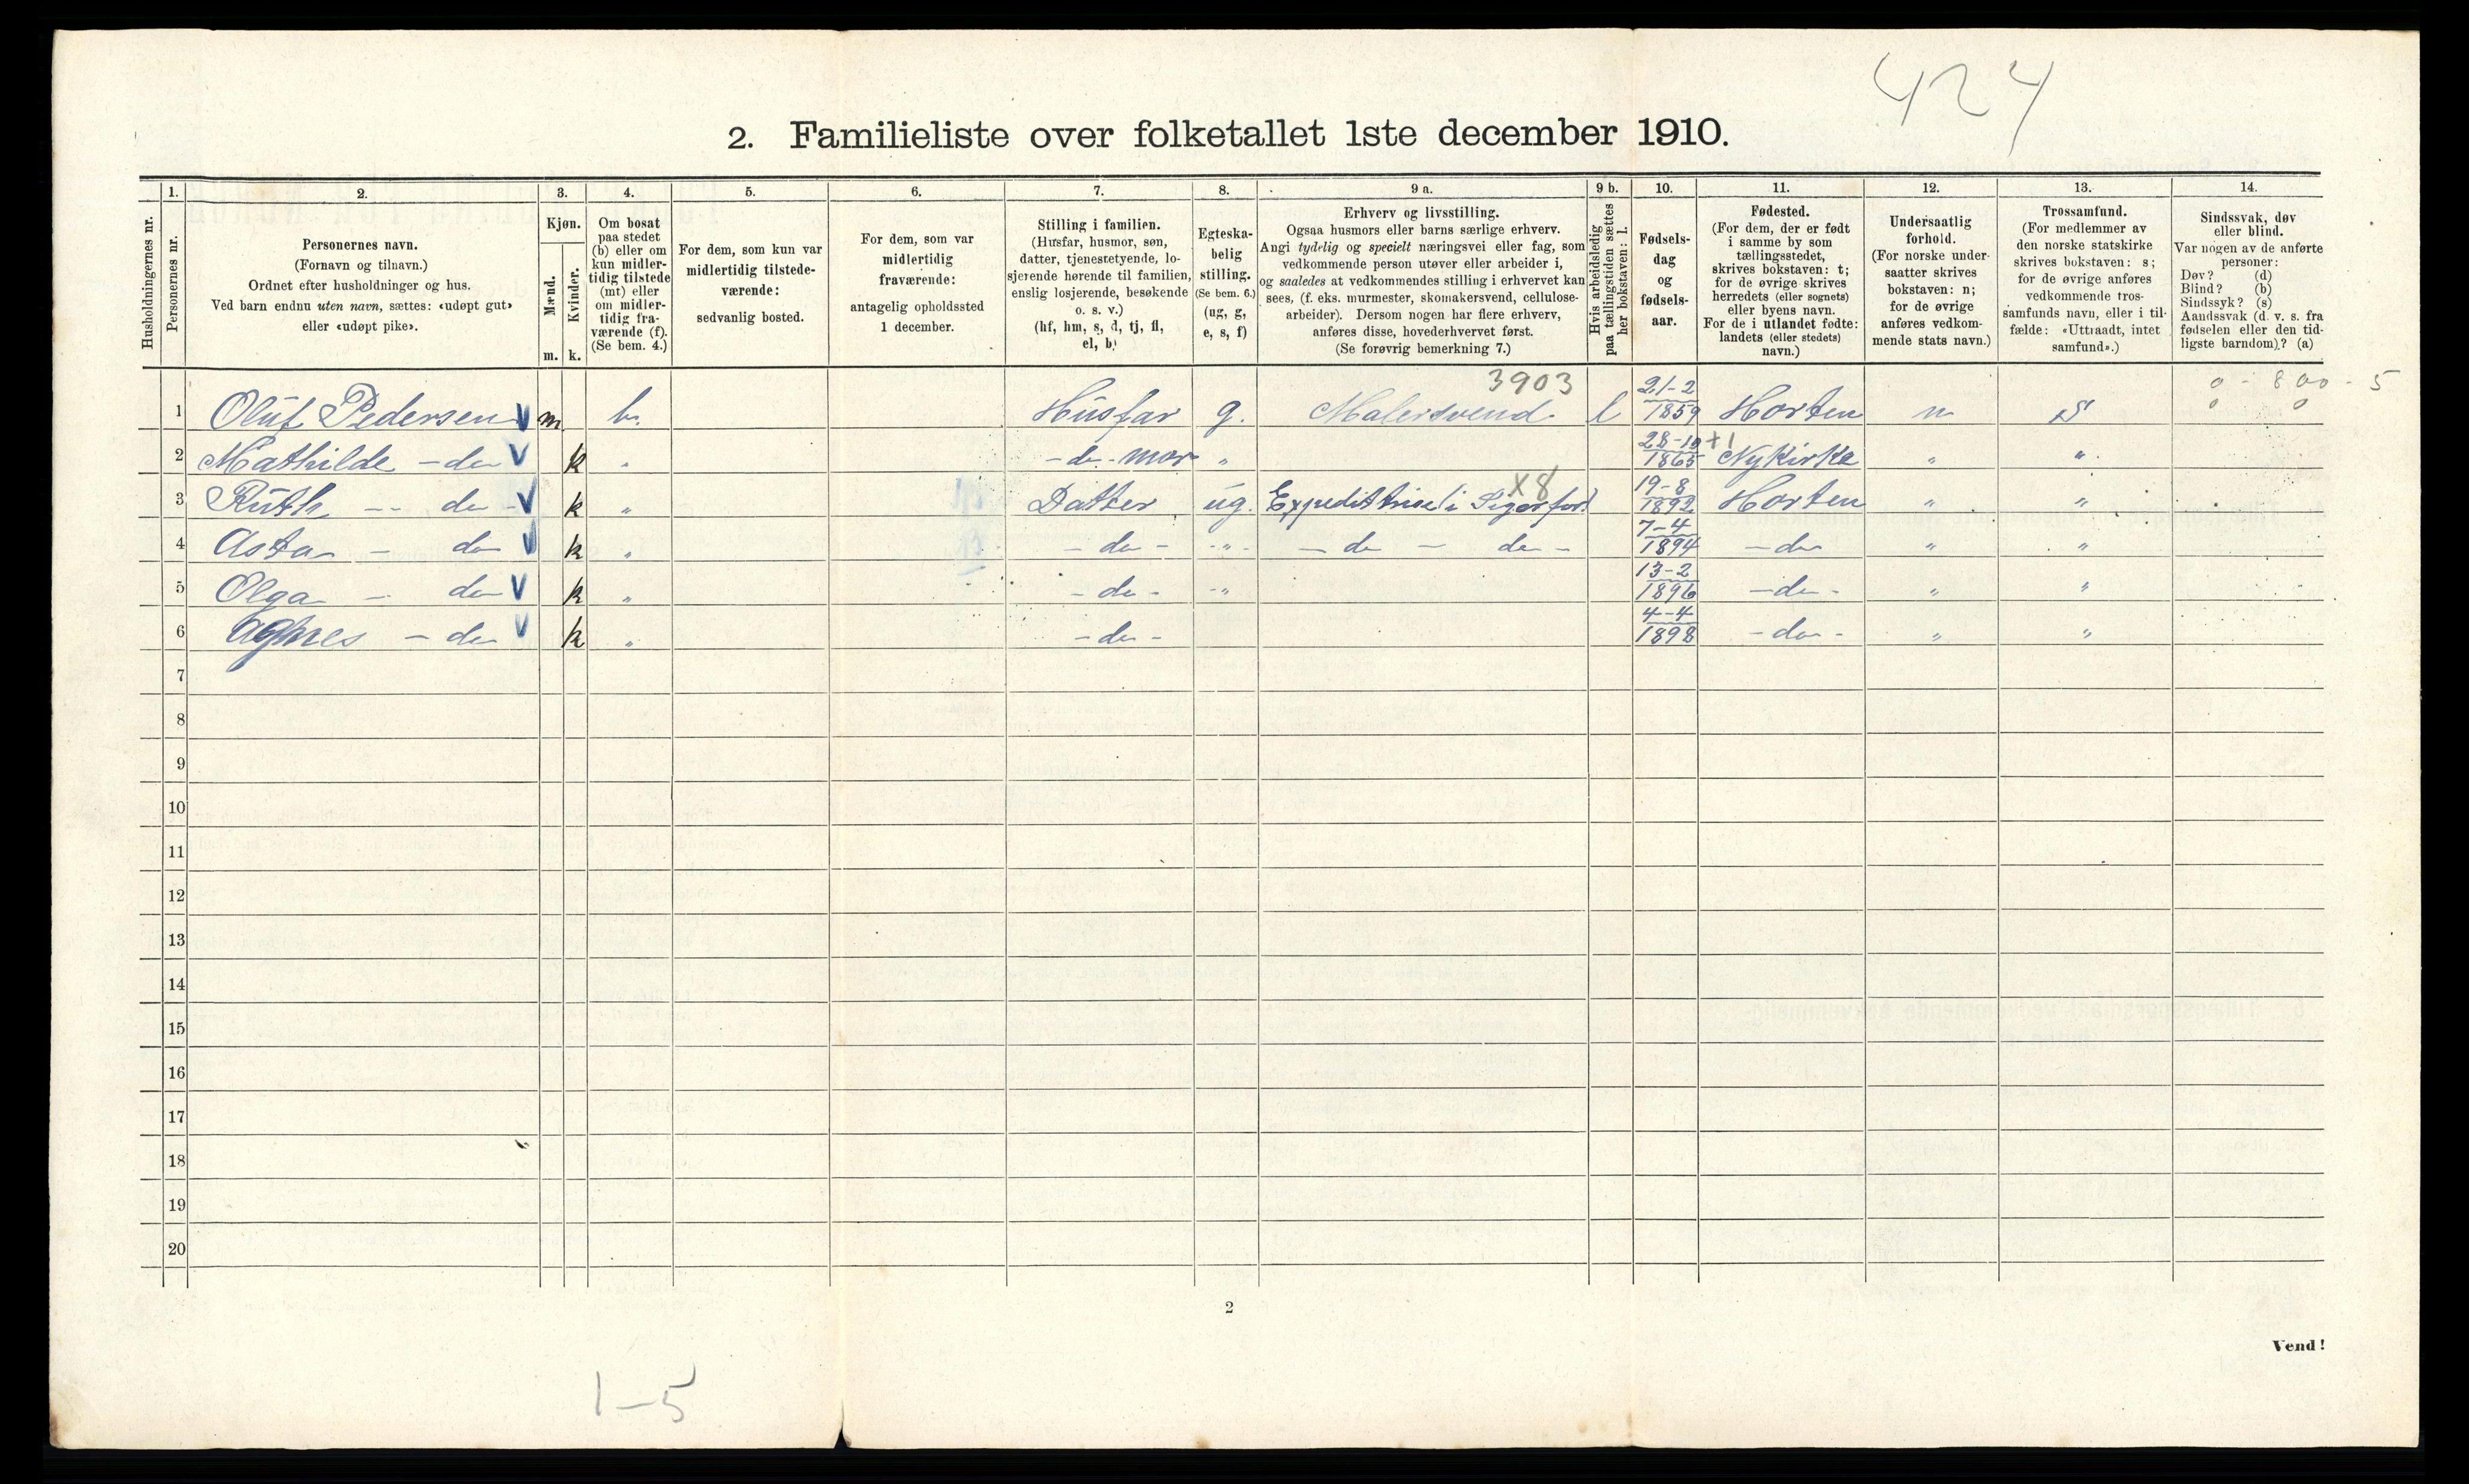 424
2. Familieliste over folketallet 1ste december 1910.
Husholdningernes nr.
1.
Personernes nr.
2.
Personernes navn.
(Fornavn og tilnavn.)
Ordnet efter husholdninger og hus.
Ved barn endnu uten navn, sættes: «udøpt gut»
eller «udøpt pike».
3.
Kjøn.
Mænd.
Kvinder.
m. k.
4.
Om bosat
paa stedet
(b) eller om
kun midler-
tidig tilstede
(mt) eller
om midler-
tidig fra-
værende (f).
(Se bem. 4.)
5.
For dem, som kun var
midlertidig tilstede-
værende:
sedvanlig bosted.
6.
For dem, som var
midlertidig
fraværende:
antagelig opholdssted
1 december.
7.
Stilling i familien.
(Husfar, husmor, søn,
datter, tjenestetyende, lo-
sjerende hørende til familien,
enslig losjerende, besøkende
o. s. v.)
(hf, hm, s, d, tj, fl,
el, b)
8.
Egteska-
belig
stilling.
(Se bem. 6.)
(ug, g,
e, s, f)
9 a.
Erhverv og livsstilling.
Ogsaa husmors eller barns særlige erhverv.
Angi tydelig og specielt næringsvei eller fag, som
vedkommende person utøver eller arbeider i,
og saaledes at vedkommendes stilling i erhvervet kan
sees, (f. eks. murmester, skomakersvend, cellulose-
arbeider). Dersom nogen har flere erhverv,
anføres disse, hovederhvervet først.
(Se forøvrig bemerkning 7.)
9 b.
Hvis arbeidsledig
paa tællingstiden sættes
her bokstaven: l.
10.
Fødsels-
dag
og
fødsels-
aar.
11.
Fødested.
(For dem, der er født
i samme by som
tællingsstedet,
skrives bokstaven: t;
for de øvrige skrives
herredets (eller sognets)
eller byens navn.
For de i utlandet fødte:
landets (eller stedets)
navn.)
12.
Undersaatlig
forhold.
(For norske under-
saatter skrives
bokstaven: n;
for de øvrige
anføres vedkom-
mende stats navn.)
13.
Trossamfund.
(For medlemmer av
den norske statskirke
skrives bokstaven: s;
for de øvrige anføres
vedkommende tros-
samfunds navn, eller i til-
fælde: «Uttraadt, intet
samfund».)
14.
Sindssvak, døv
eller blind.
Var nogen av de anførte
personer:
Døv? (d)
Blind? (b)
Sindssyk? (s)
Aandssvak (d. v. s. fra
fødselen eller den tid-
ligste barndom)? (a)
3903 0 - 800 - 5
1 Oluf Pedersen V m b. Husfar g. Malersvend l 21-2 1859 Horten n S 0 0
2 Mathilde - do V k " - do - mor " 28-10 1865 +1 Nykirke " "
3 Ruth - do - V k " Datter ug. Expeditrise i X8 19-8 1892 Horten " "
4 Asta - do V k " - do - - " - - do - do - 7-4 1894 - do " "
5 Olga - do V k " - do - - " 13-2 1896 - do - " "
6 Aghnes - do V k " - do - 4-4 1898 - do - " "
7
8
9
10
11
12
13
14
15
16
17
18
19
20
2
Vend!
1-5